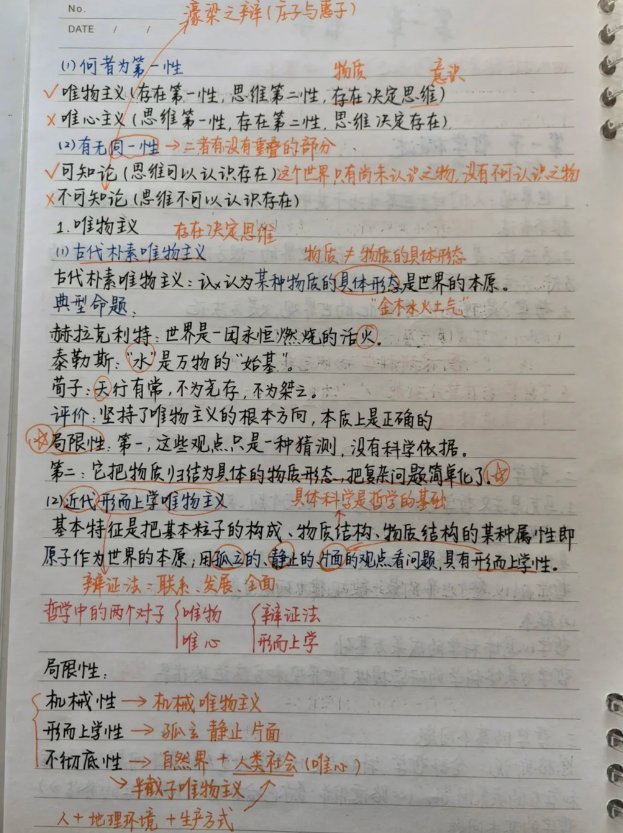 No.
濠梁之辩(庄子与惠子)
DATE / /
(1)何者为第一性 物质 意识
√唯物主义(存在第一性,思维第二性,存在决定思维)
×唯心主义(思维第一性,存在第二性,思维决定存在)
(2)有无同一性→二者有没有重叠的部分
√可知论(思维可以认识存在)这个世界只有尚未认识之物,没有不可认识之物
×不可知论(思维不可以认识存在)
1.唯物主义 存在决定思维
(1)古代朴素唯物主义 物质≠物质的具体形态
古代朴素唯物主义:认为某种物质的具体形态是世界的本原。
典型命题: "金木水火土气"
赫拉克利特:世界是一团永恒燃烧的活火。
泰勒斯:"水"是万物的"始基"。
荀子:天行有常,不为尧存,不为桀亡。
评价:坚持了唯物主义的根本方向,本质上是正确的
☆局限性:第一,这些观点只是一种猜测,没有科学依据。
第二:它把物质归结为具体的物质形态,把复杂问题简单化了。☆
(2)近代形而上学唯物主义 具体科学是哲学的基础
基本特征是把基本粒子的构成、物质结构、物质结构的某种属性即
原子作为世界的本原;用孤立的、静止的、片面的观点看问题,具有形而上学性。
辩证法:联系、发展、全面
哲学中的两个对子{唯物 {辩证法
唯心 形而上学
局限性:
机械性→机械唯物主义
形而上学性→孤立 静止 片面
不彻底性→自然界+人类社会(唯心)
→半截子唯物主义
人+地理环境+生产方式